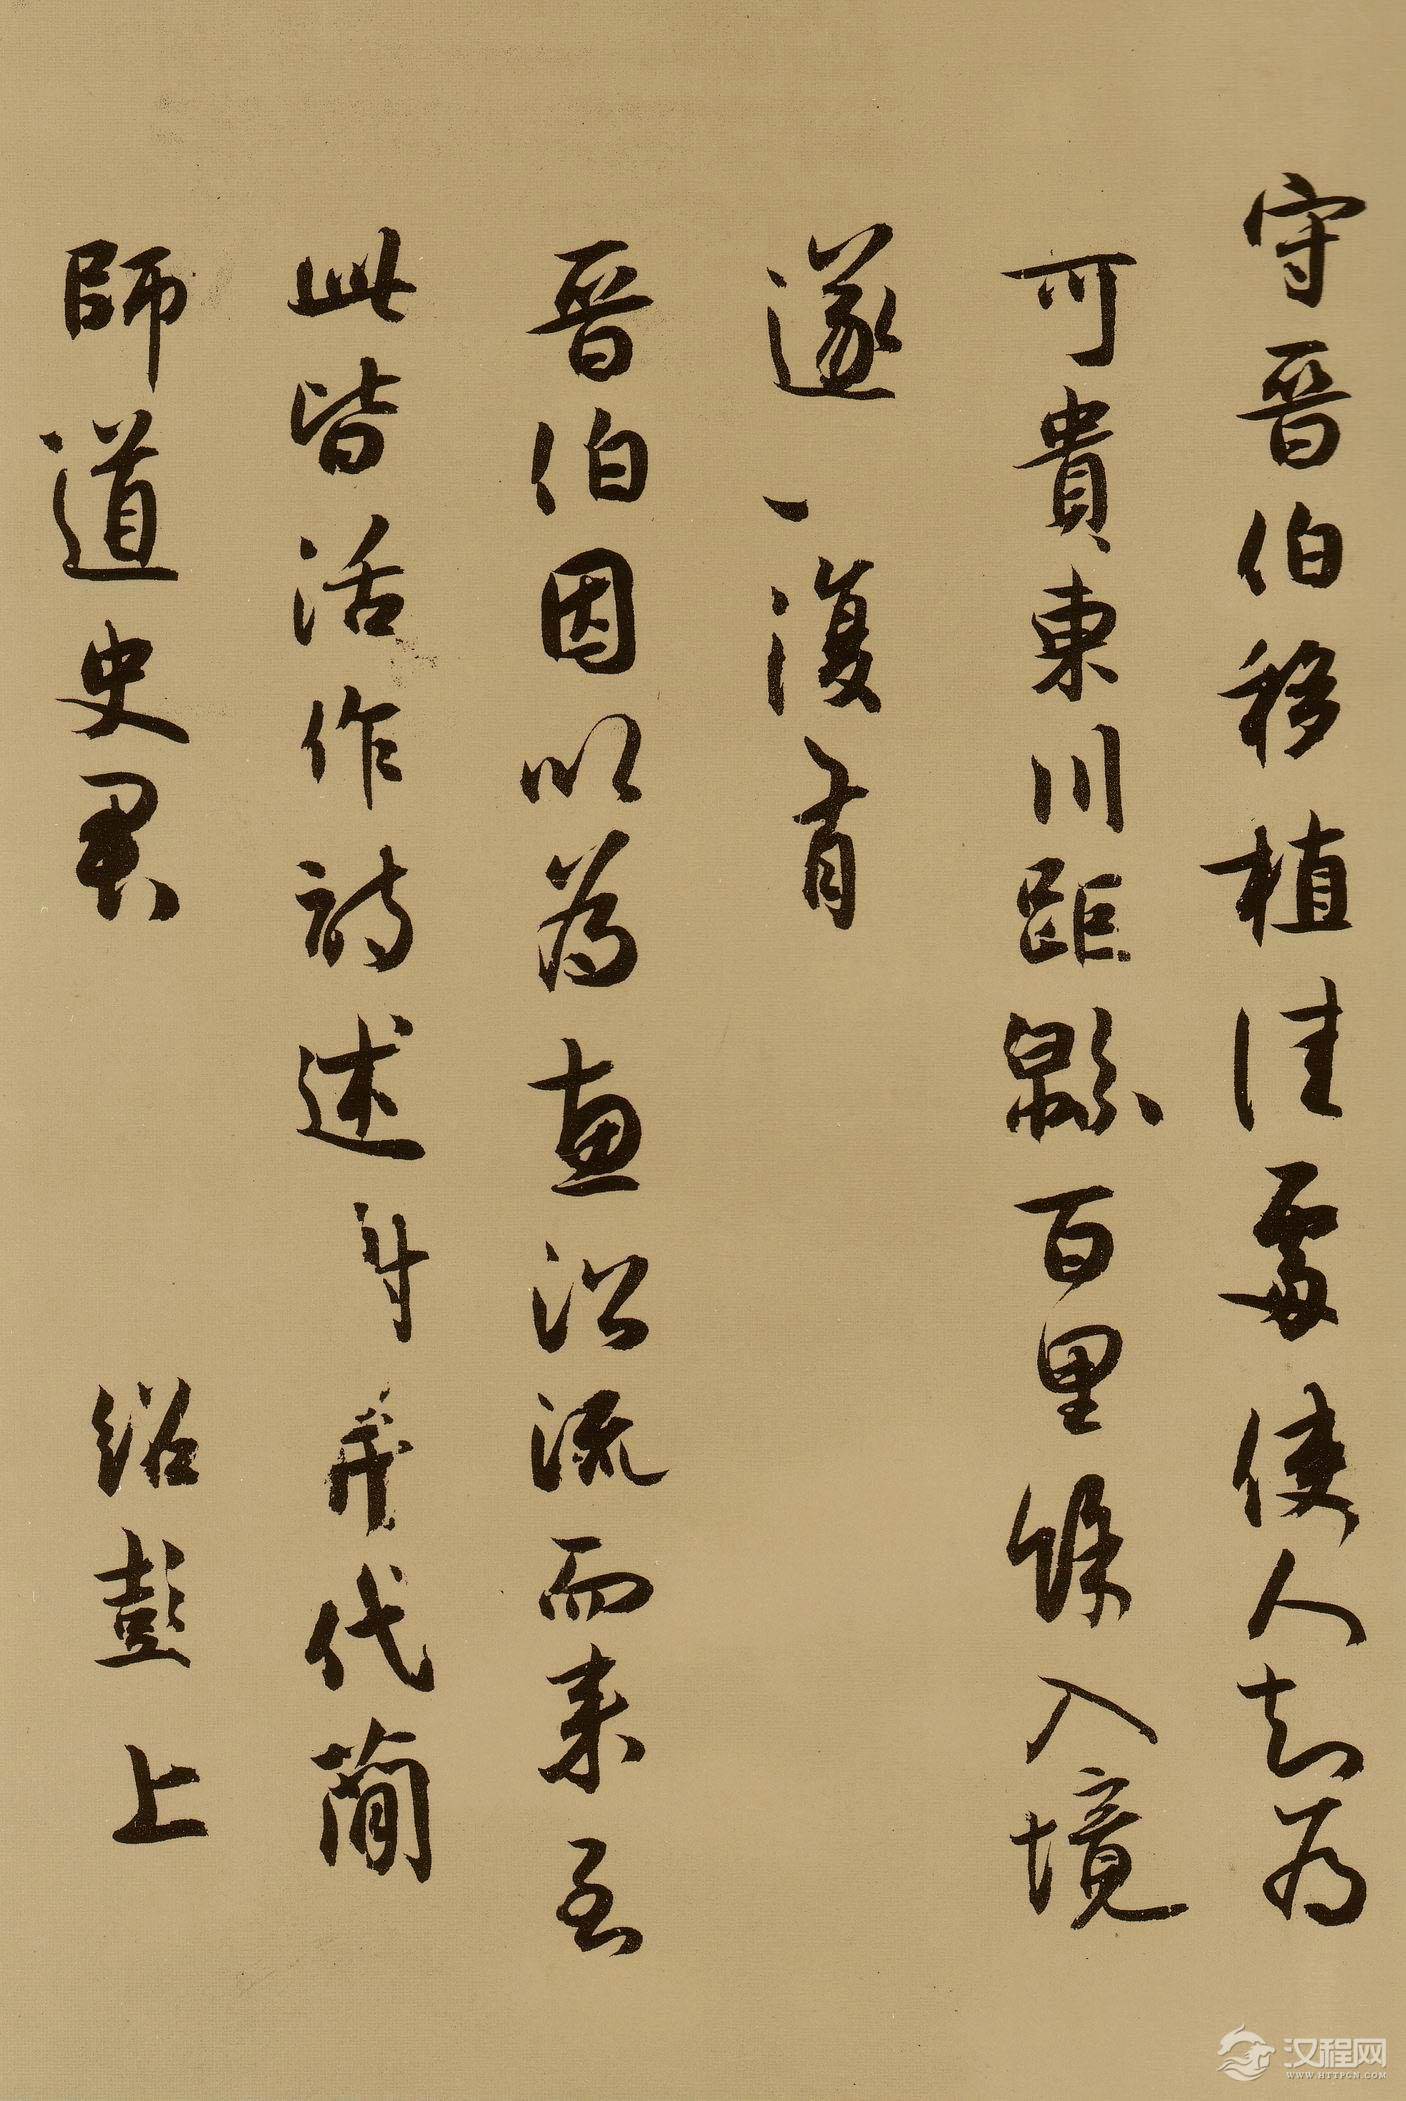 守晉伯移植佳處使人知為
可貴東川距綿百里餘入境
遂一復有
晉伯因以為惠沿流而來至
此皆活作詩述謝代簡
師道史君 紹彭上
汉程网
WWW.HTTPCN.COM